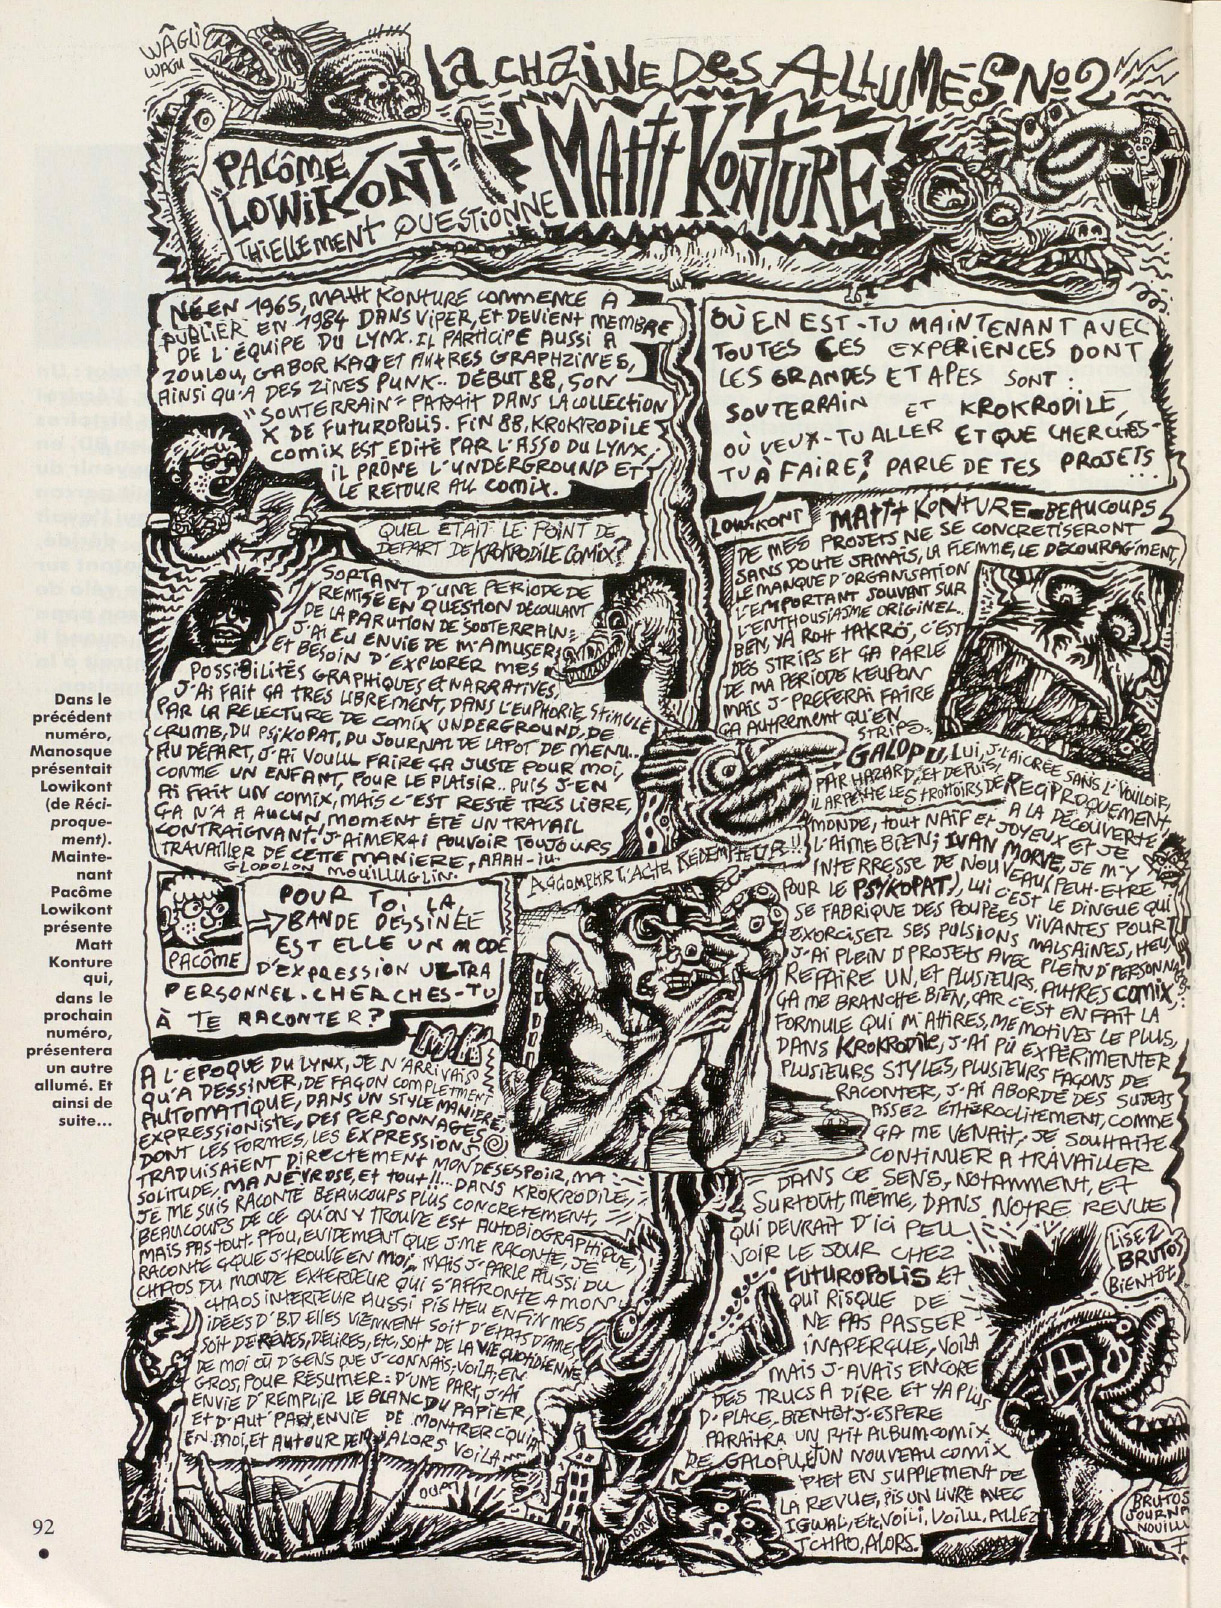 WÂGLI
WAGU
LA CHAINE DES ALLUMÉS Nº2
"PACÔME
LOWIKONT"
THIELLEMENT QUESTIONNE
MATTT KONTURE
NÉ EN 1965, MATTT KONTURE COMMENCE A
PUBLIER EN 1984 DANS VIPER, ET DEVIENT MEMBRE
DE L'ÉQUIPE DU LYNX. IL PARTICIPE AUSSI A
ZOULOU, GABOR KAO ET AUTRES GRAPHZINES,
AINSI QU'A DES ZINES PUNK.. DÉBUT 88, SON
"SOUTERRAIN" PARAIT DANS LA COLLECTION
X DE FUTUROPOLIS. FIN 88, KROKRODILE
COMIX EST EDITÉ PAR L'ASSO DU LYNX,
IL PRÔNE L'UNDERGROUND ET
LE RETOUR AU COMIX.
QUEL ETAIT LE POINT DE
DEPART DE KROKRODILE COMIX?
SORTANT D'UNE PERIODE DE
REMISE EN QUESTION DÉCOULANT
DE LA PARUTION DE SOUTERRAIN:
J'AI EU ENVIE DE M'AMUSER
ET BESOIN D'EXPLORER MES
POSSIBILITÉS GRAPHIQUES ET NARRATIVES,
J'AI FAIT ÇA TRES LIBREMENT, DANS L'EUPHORIE, STIMULÉ
PAR LA RELECTURE DE COMIX UNDERGROUND, DE
CRUMB, DU PSIKOPAT, DU JOURNAL DE LAPOT DE MENU..
AU DÉPART, J'AI VOULU FAIRE ÇA JUSTE POUR MOI,
COMME UN ENFANT, POUR LE PLAISIR.. PUIS J'EN
AI FAIT UN COMIX, MAIS C'EST RESTÉ TRES LIBRE,
ÇA N'A A AUCUN MOMENT ÉTÉ UN TRAVAIL
CONTRAIGNANT! J'AIMERAI POUVOIR TOUJOURS
TRAVAILLER DE CETTE MANIERE, AAAH-IU-
GLOPOLON MOUILLUGLIN.
PACÔME
POUR TOI LA
BANDE DESSINÉE
EST ELLE UN MODE
D'EXPRESSION ULTRA
PERSONNEL. CHERCHES-TU
À TE RACONTER?
M.K
A L'EPOQUE DU LYNX, JE N'ARRIVAIS
QU'A DESSINER, DE FAÇON COMPLETMENT
AUTOMATIQUE, DANS UN STYLE MANIERÉ,
EXPRESSIONISTE, DES PERSONNAGES
DONT LES FORMES, LES EXPRESSIONS
TRADUISAIENT DIRECTEMENT MON DESESPOIR, MA
SOLITUDE, MA NÉVROSE, ET TOUT!!... DANS KROKRODILE,
JE ME SUIS RACONTÉ BEAUCOUPS PLUS CONCRETEMENT,
BEAUCOUPS DE CE QU'ON Y TROUVE EST AUTOBIOGRAPHIQUE,
MAIS PAS TOUT. PFOU, EVIDEMENT QUE J-ME RACONTE, JE
RACONTE C'QUE J-TROUVE EN MOI, MAIS J-PARLE AUSSI DU
CHAOS DU MONDE EXTERIEUR QUI S'AFFRONTE A MON
CHAOS INTERIEUR AUSSI PIS HEU ENFIN MES
IDÉES D'BD ELLES VIENNENT SOIT D'ETATS D'AMES,
SOIT DE RÊVES, DÉLIRES, ETC, SOIT DE LA VIE QUOTIDIENNE
DE MOI OU D'GENS QUE J-CONNAIS. VOILA, EN
GROS, POUR RÉSUMER: D'UNE PART, J'AI
ENVIE D'REMPLIR LE BLANC DU PAPIER,
ET D'AUT'PART, ENVIE DE MONTRER C'QU'YA
EN MOI, ET AUTOUR DE MOI ALORS VOILA
OUAF
MORVE
OÙ EN EST-TU MAINTENANT AVEC
TOUTES CES EXPERIENCES DONT
LES GRANDES ETAPES SONT:
SOUTERRAIN ET KROKRODILE,
OÙ VEUX-TU ALLER ET QUE CHERCHES-
TU À FAIRE? PARLE DE TES PROJETS
LOWIKONT
MATTT KONTURE-BEAUCOUPS
DE MES PROJETS NE SE CONCRETISERONT
SANS DOUTE JAMAIS, LA FLEMME, LE DÉCOURAG'MENT,
LE MANQUE D'ORGANISATION
L'EMPORTANT SOUVANT SUR
L'ENTHOUSIASME ORIGINEL..
BEN, YA ROTT TAKRÖ, C'EST
DES STRIPS ET ÇA PARLE
DE MA PERIODE KEUPON
MAIS J'PREFERAI FAIRE
ÇA AUTREMENT QU'EN
STRIPS..
GALOPU, LUI, J-L'AI CRÉE SANS L'VOULOIR,
PAR HAZARD, ET DEPUIS,
IL ARPENTE LES TROTTOIRS DE RÉCIPROQUEMENT
A LA DÉCOUVERTE
MONDE, TOUT NAÏF ET JOYEUX ET JE
L'AIME BIEN; IVAN MORVE, JE M'Y
INTERRESSE DE NOUVEAU, PEUT-ETRE
POUR LE PSYKOPAT!, LUI C'EST LE DINGUE QUI
SE FABRIQUE DES POUPÉES VIVANTES POUR
EXORCISER SES PULSIONS MALSAINES, HEU,
J'AI PLEIN D'PROJETS AVEC PLEIN D'PERSONNA
REFAIRE UN, ET PLUSIEURS, AUTRES COMIX,
ÇA ME BRANCHE BIEN, CAR C'EST EN FAIT LA
FORMULE QUI M'ATTIRES, ME MOTIVES LE PLUS,
DANS KROKRODILE, J'AI PÛ EXPÉRIMENTER
PLUSIEURS STYLES, PLUSIEURS FAÇONS DE
RACONTER, J'AI ABORDÉ DES SUJETS
ASSEZ ETHEROCLITEMENT, COMME
ÇA ME VENAIT. JE SOUHAITE
CONTINUER A TRAVAILLER
DANS CE SENS, NOTAMMENT, ET
SURTOUT, MÊME, DANS NOTRE REVUE
QUI DEVRAIT D'ICI PEU
VOIR LE JOUR CHEZ
FUTUROPOLIS ET
QUI RISQUE DE
NE PAS PASSER
INAPERÇUE, VOILA
MAIS J-AVAIS ENCORE
DES TRUCS A DIRE ET YA PLUS
D'PLACE. BIENTÔT J-ESPERE
PARAITRA UN PTIT ALBUM COMIX
DE GALOPU, ET UN NOUVEAU COMIX
PTET EN SUPPLEMENT DE
LA REVUE, PIS UN LIVRE AVEC
IGWAL, ETC, VOILI, VOILU, ALLEZ
TCHAO, ALORS.
ACCOMPLIR L'ACTE RÉDEMPTEUR!!
LISEZ
BRUTOS
BIENTÔT
BRUTOS
JOURNA
NOUILLU
Dans le
précédent
numéro,
Manosque
présentait
Lowikont
(de Réci-
proque-
ment).
Mainte-
nant
Pacôme
Lowikont
présente
Matt
Konture
qui,
dans le
prochain
numéro,
présentera
un autre
allumé. Et
ainsi de
suite...
92